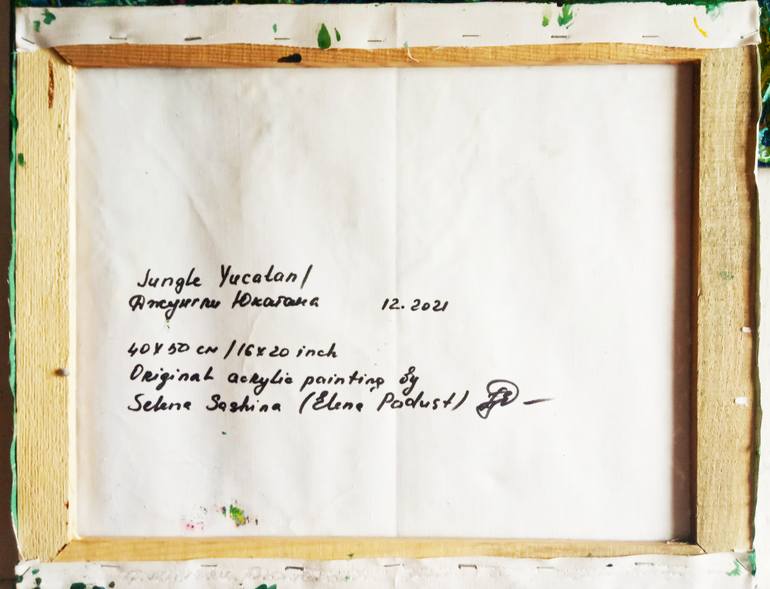 Jungle Yucatan/
Джунгли Юкатана 12.2021
40x50 см/16x20 inch
Original acrylic painting by
Selena Sashina (Elena Padust)